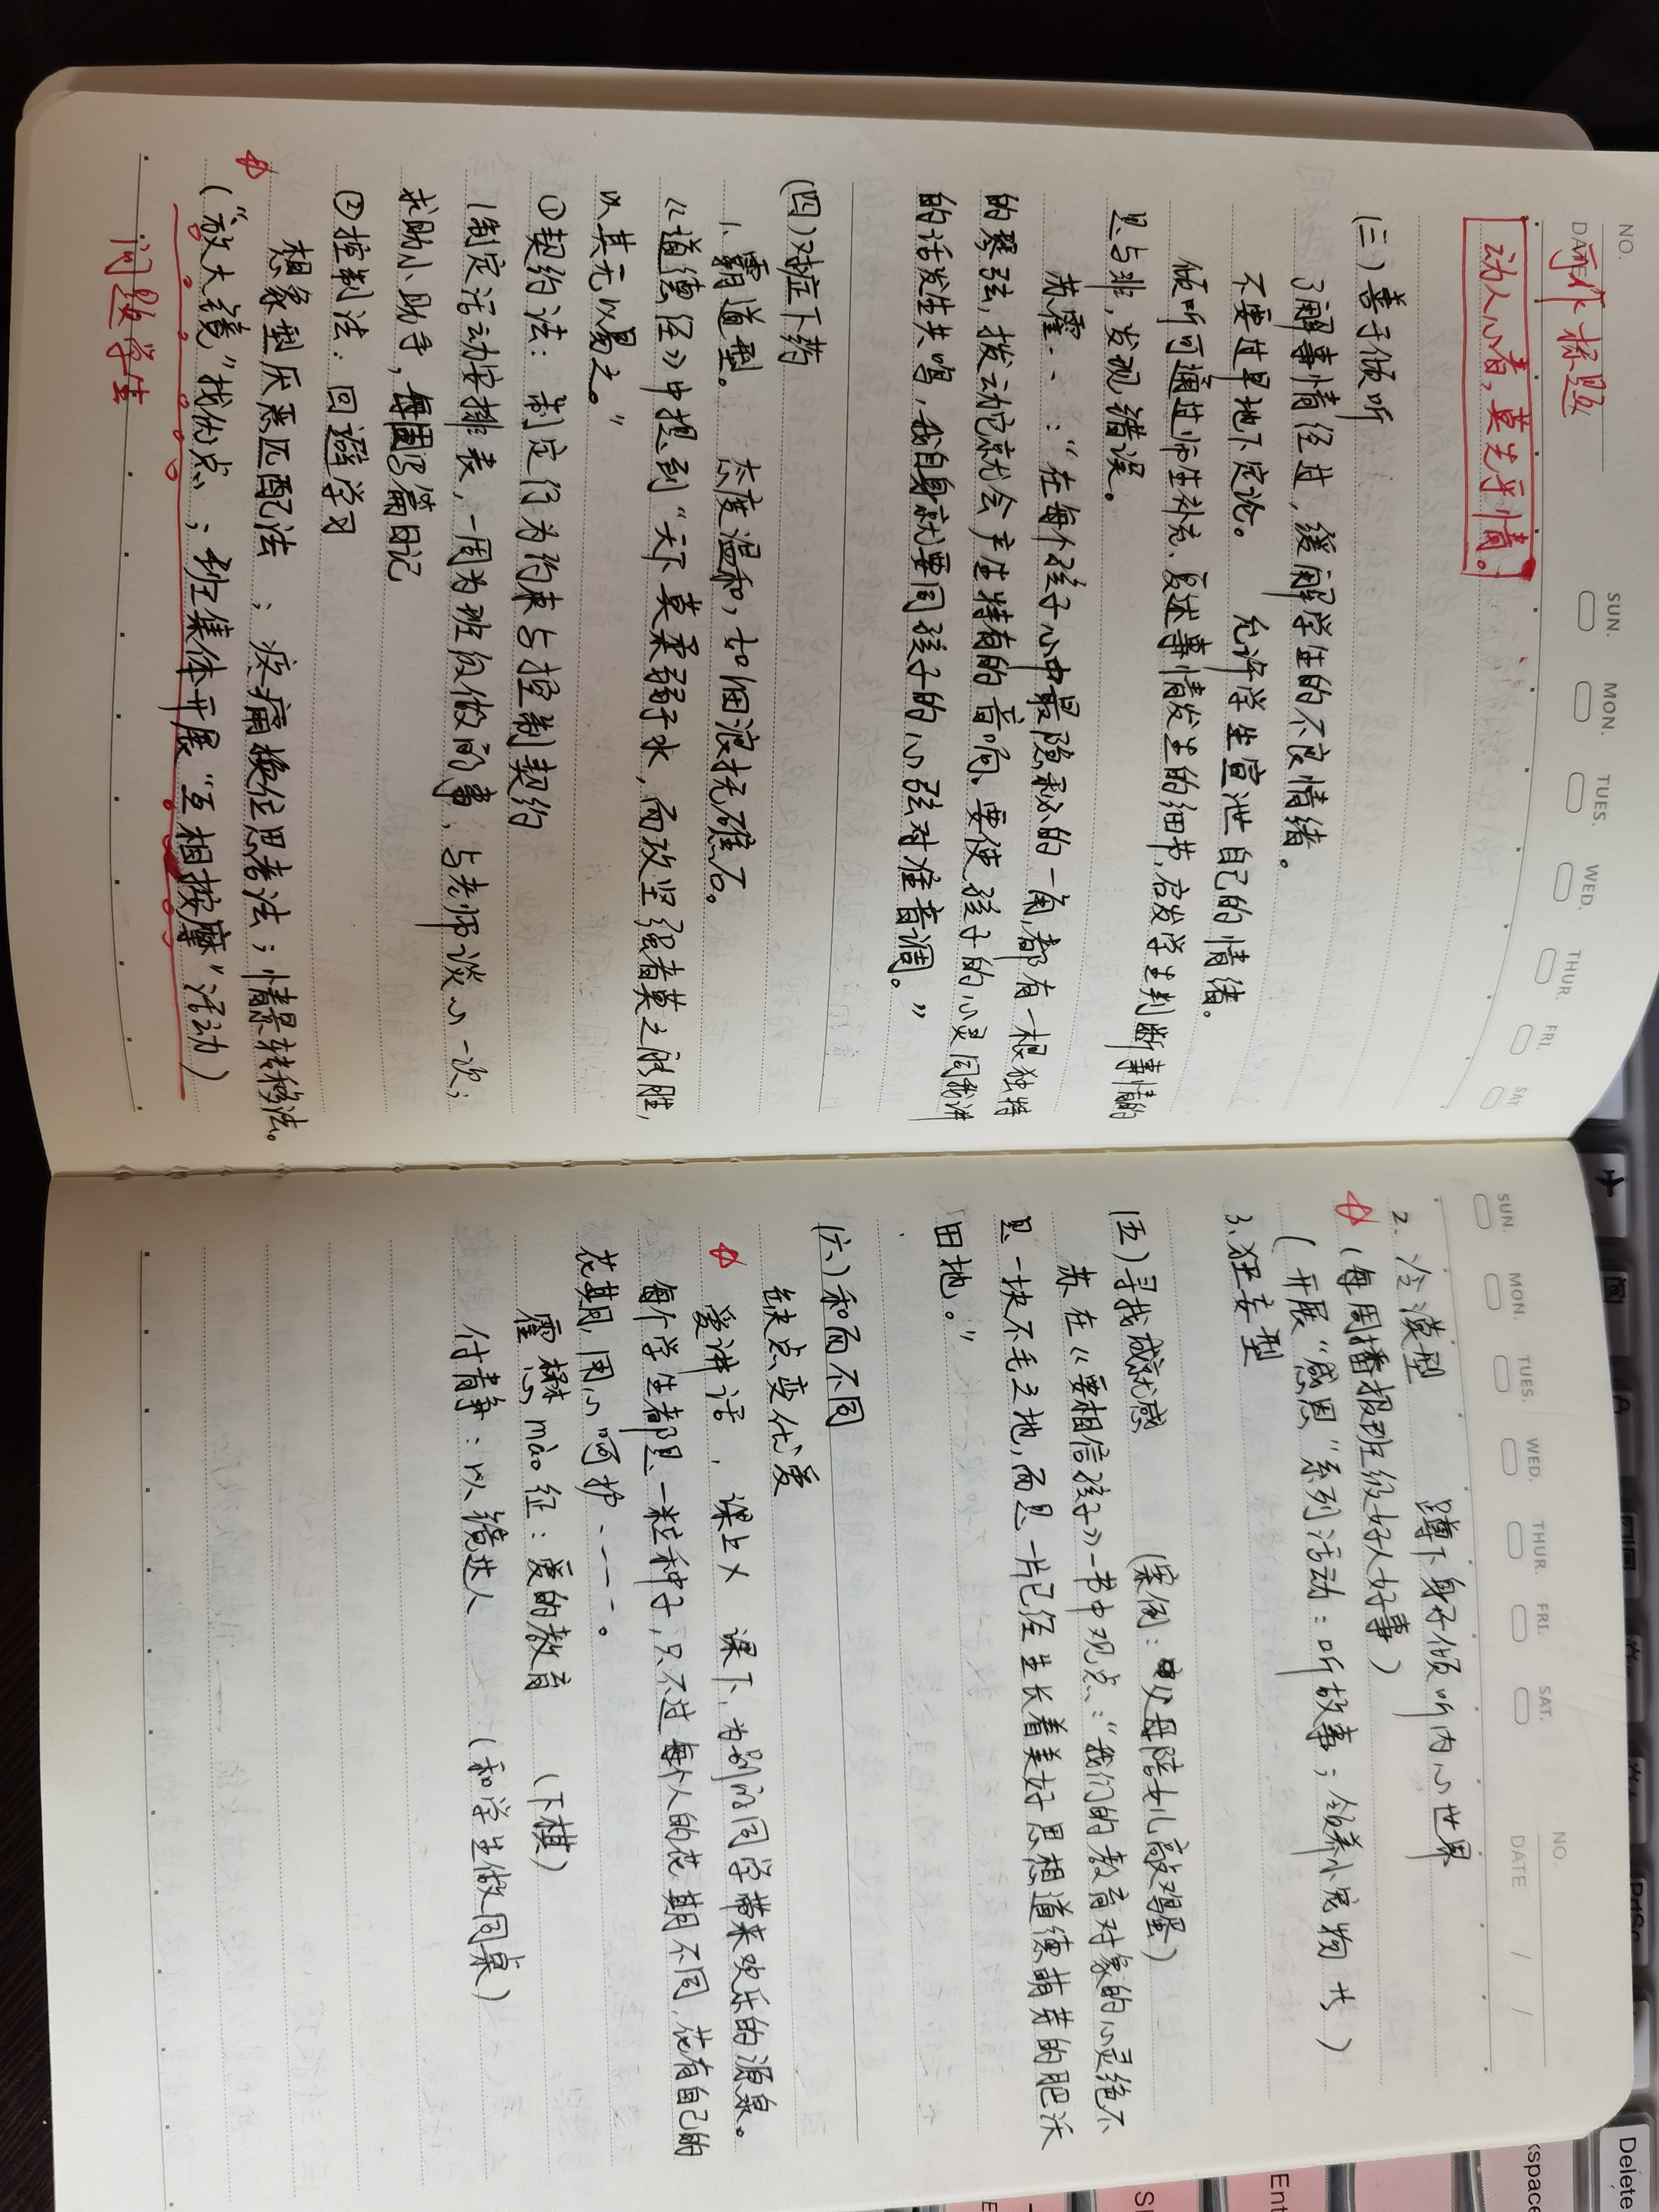 NO.
DATE
可作标题
SUN. MON. TUES. WED. THUR. FRI. SAT.
动人心者，莫先乎情。
(三)善于倾听
了解事情经过，缓解学生的不良情绪。
不要过早地下定论。 允许学生宣泄自己的情绪。
倾听可通过师生补充、复述事情发生的细节，启发学生判断事情的
是与非，发现错误。
苏霍..：“在每个孩子心中最隐秘的一角，都有一根独特
的琴弦，拨动它就会产生特有的音响，要使孩子的心灵同我讲
的话发生共鸣，我自身就要同孩子的心弦对准音调。”
(四)对症下药
1、霸道型。 态度温和，如细浪抚礁石。
《道德经》中提到“天下莫柔弱于水，而攻坚强者莫之能胜，
以其无以易之。”
①契约法：制定行为约束与控制契约
(制定活动安排表，一周为班级做的事，与老师谈心一次；
求助小助手，每周写篇日记
②控制法：回避学习
想象型厌恶匹配法；疼痛换位思考法；情景转移法。
(“放大镜”找优点；班集体开展“互相按摩”活动)
问题学生
SUN. MON. TUES. WED. THUR. FRI. SAT.
NO.
DATE / /
2.冷漠型 蹲下身子倾听内心世界
(每周播报班级好人好事)
(开展“感恩”系列活动：听故事；领养小宠物 ..)
3、狂妄型
(五)寻找成就感 (案例：父母陪女儿敲鸡蛋)
苏在《要相信孩子》一书中观点：“我们的教育对象的心灵绝不
是一块不毛之地，而是一片已经生长着美好思想道德萌芽的肥沃
田地。”
(六)和而不同
缺点变优爱
爱讲话，课上× 课下，为别的同学带来欢乐的源泉。
每个学生都是一粒种子，只不过每个人的花期不同，花有自己的
花期，用心呵护.---。
霍懋mào征：爱的教育 (下棋)
付青静：以镜达人 (和学生做同桌)
Delete